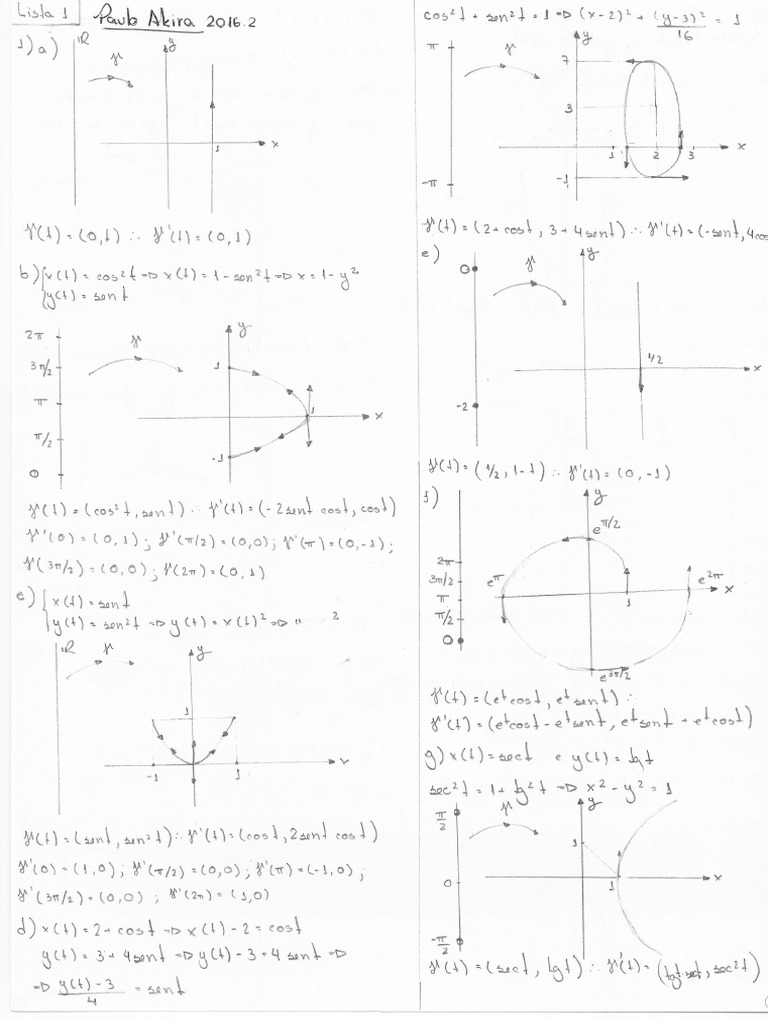 Lista 1 Paulo Akira 2016.2
1) a)
IR γ y
1 x
γ(t) = (0,t) ∴ γ'(t) = (0,1)
b) { x(t) = cos²t => x(t) = 1 - sen²t => x = 1 - y²
y(t) = sent
2π γ y
3π/2 1
π 1 x
π/2
0 -1
γ(t) = (cos²t, sent) ∴ γ'(t) = (-2sent cost, cost)
γ'(0) = (0,1); γ'(π/2) = (0,0); γ'(π) = (0,-1);
γ'(3π/2) = (0,0); γ'(2π) = (0,1)
c) { x(t) = sent
y(t) = sen²t => y(t) = x(t)² =>
IR γ y
1
-1 1 x
γ(t) = (sent, sen²t) ∴ γ'(t) = (cost, 2sent cost)
γ'(0) = (1,0); γ'(π/2) = (0,0); γ'(π) = (-1,0);
γ'(3π/2) = (0,0); γ'(2π) = (1,0)
d) x(t) = 2 + cost => x(t) - 2 = cost
y(t) = 3 + 4sent => y(t) - 3 = 4 sent =>
=> y(t) - 3 / 4 = sent
cos²t + sen²t = 1 => (x-2)² + (y-3)²/16 = 1
π γ y
7
3
1 2 3 x
-π -1
γ(t) = (2 + cost, 3 + 4sent) ∴ γ'(t) = (-sent, 4cos
e)
0 γ y
1/2 x
-2
γ(t) = (1/2, 1-t) ∴ γ'(t) = (0,-1)
f)
y
e^π/2
2π
3π/2 e^π e^2π
π 1 x
π/2
0
e^3π/2
γ(t) = (e^t cost, e^t sent) ∴
γ'(t) = (e^t cost - e^t sent, e^t sent + e^t cost)
g) x(t) = sect e y(t) = tgt
sec²t = 1 + tg²t => x² - y² = 1
π/2 γ y
1
0 1 x
-π/2
γ(t) = (sect, tgt) ∴ γ'(t) = (tgt sect, sec²t)